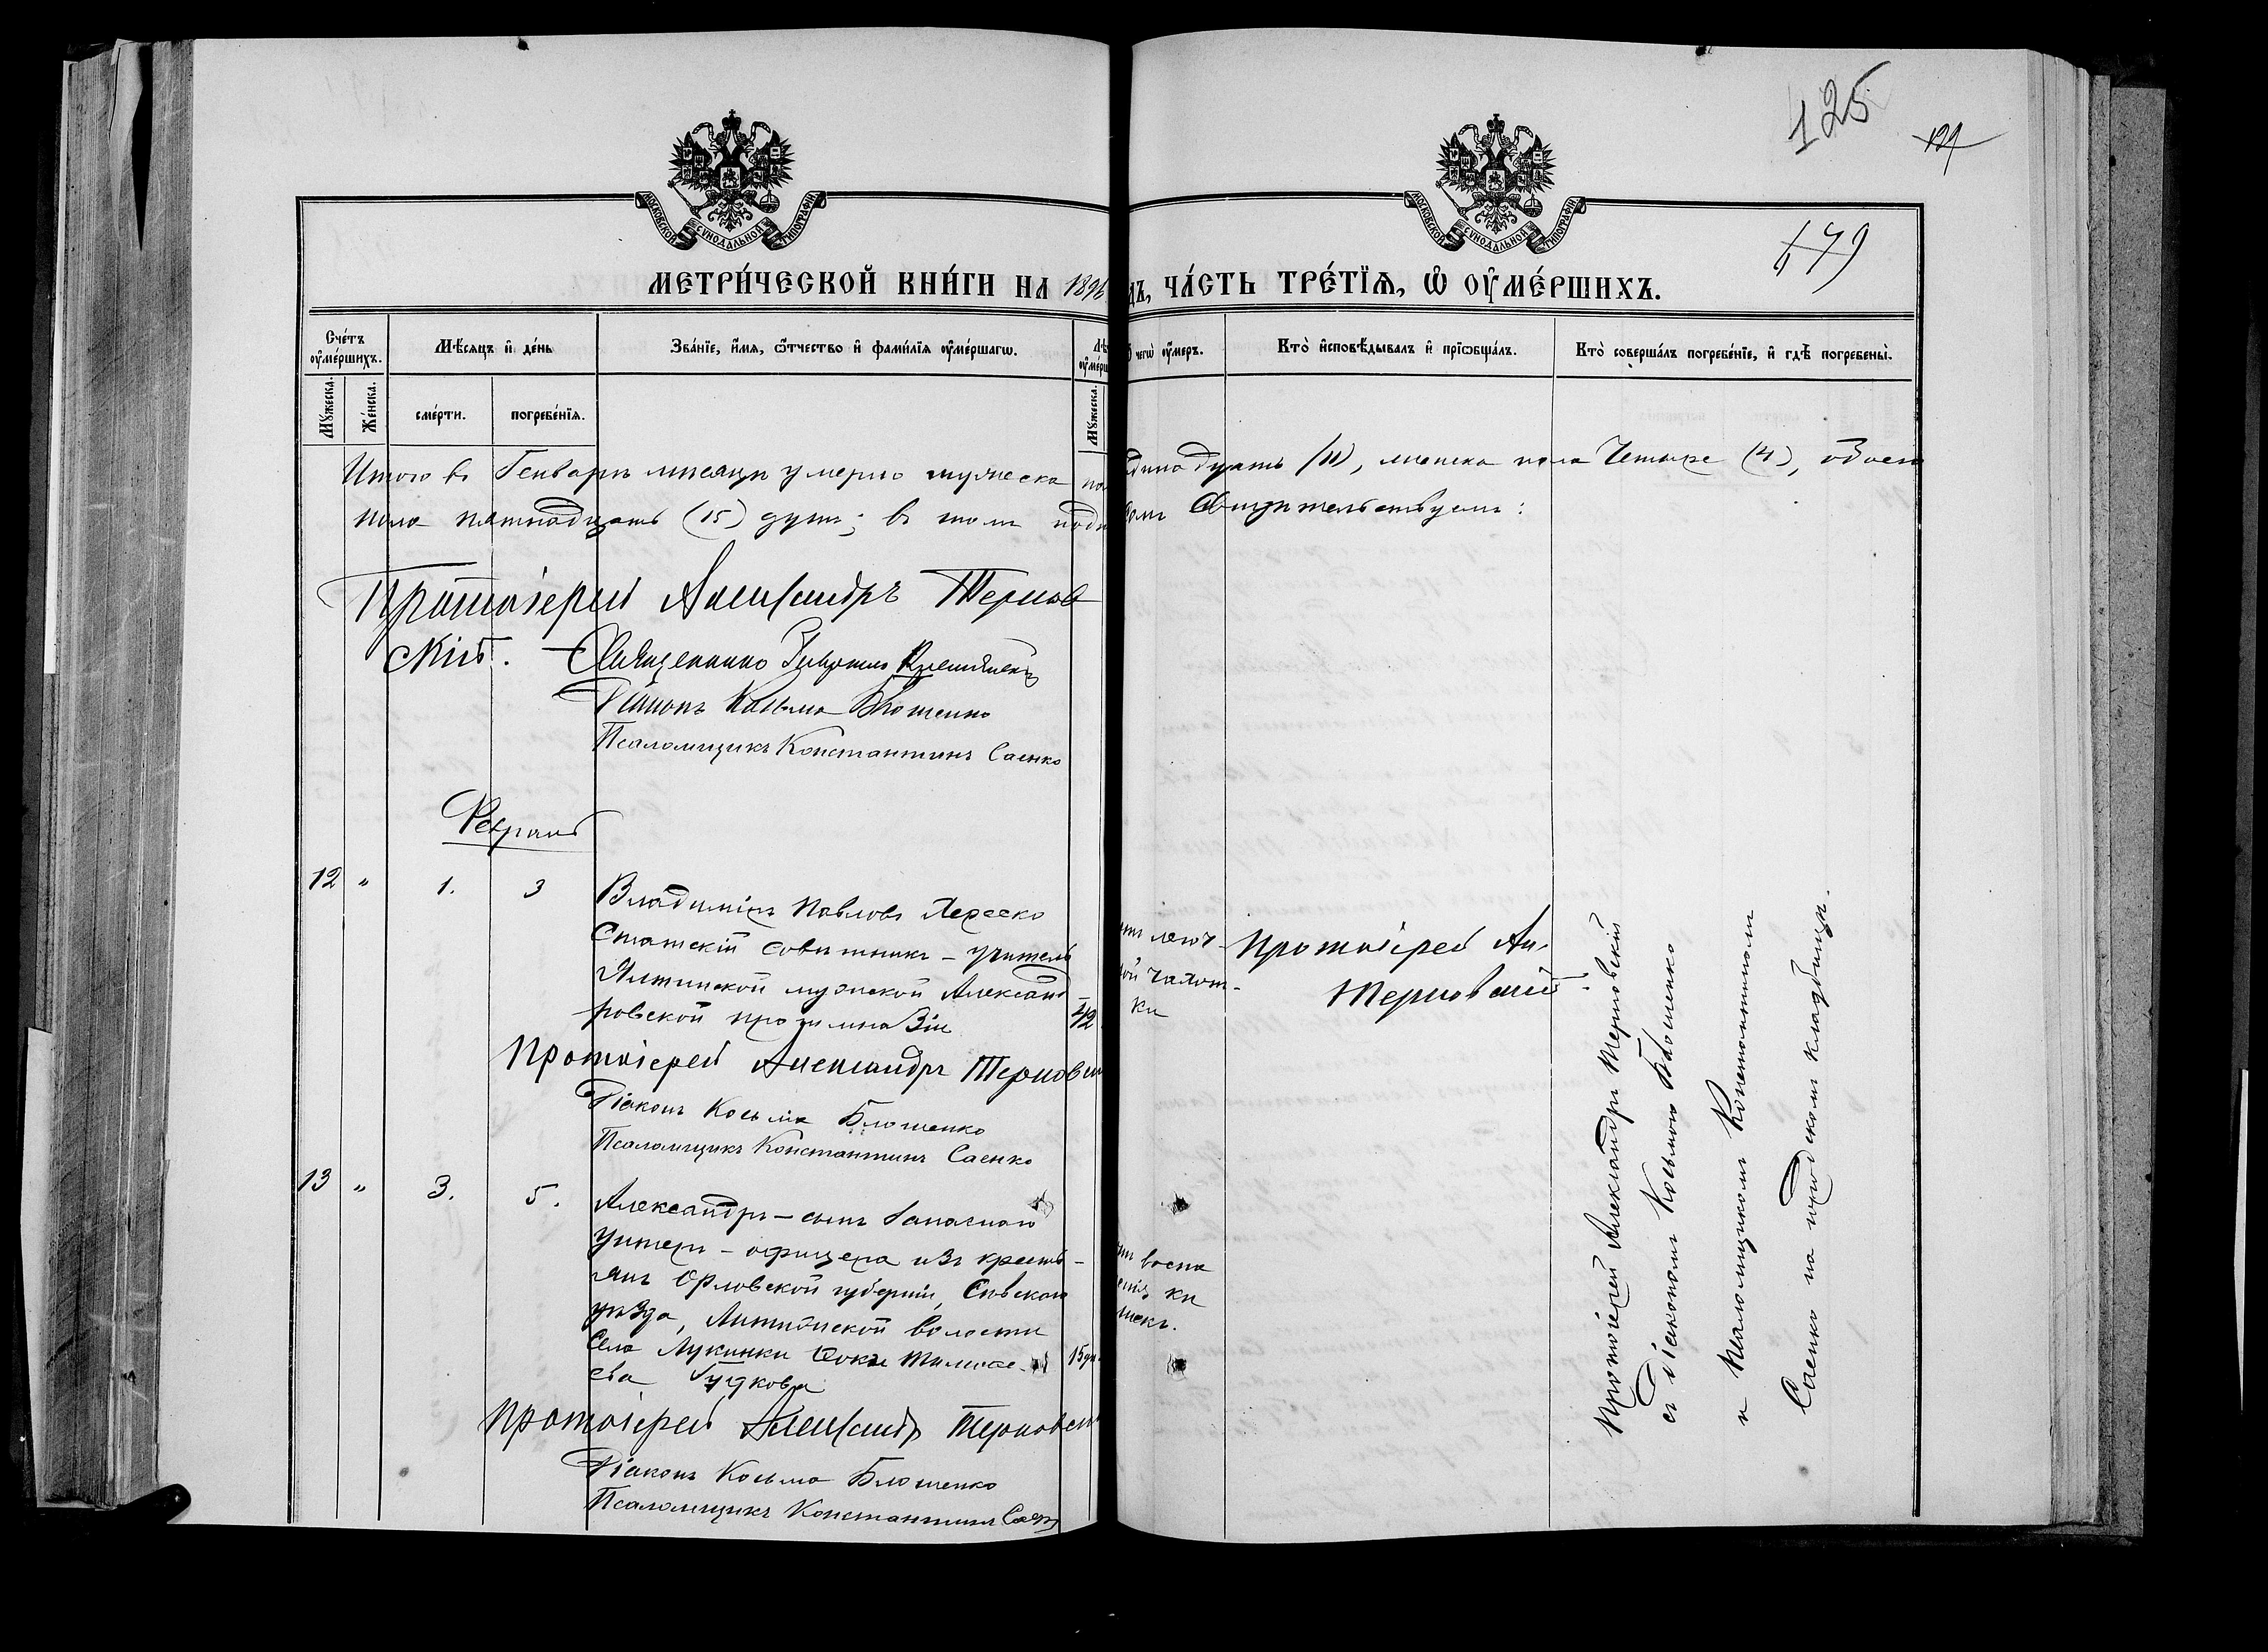 125
179
МОСКОВСКОЙ СѴНОДАЛЬНОЙ ТИПОГРАФІИ
МОСКОВСКОЙ СѴНОДАЛЬНОЙ ТИПОГРАФІИ
МЕТРИ́ЧЕСКОЙ КНИ́ГИ НА 1896
дъ, ЧА́СТЬ ТРЕ́ТЇѦ, Ѡ҆ ОУ҆МЕ́РШИХЪ.
Сче́тъ оу҆ме́ршихъ.
Мѣ́сяцъ и҆ де́нь
Зва́нїе, и҆́мѧ, ѻ҆́тчество и҆ фами́лїѧ оу҆ме́ршагѡ.
чегѡ̀ оу҆́меръ.
Кто̀ и҆сповѣ́дывалъ и҆ прїѡбща́лъ.
Кто̀ соверша́лъ погребе́нїе, и҆ гдѣ̀ погребены̀.
Мꙋ́жеска.
Же́нска.
сме́рти.
погребе́нїѧ.
Мꙋ́жеска.
Итого въ Генварѣ мѣсяцѣ умерло мужеска
динадцать (11), женска пола Четыре (4), обоего
пола пятнадцать (15) душъ; въ томъ
Свидѣтельствуемъ:
Протоіерей Александръ Тернов
скій. Священникъ
Діаконъ Косьма Блошенко
Псаломщикъ Константинъ Саенко
Февраль
12 " 1. 3
Владиміръ Павловъ
Статскій Совѣтникъ - учитель
Ялтинской мужской Александ-
ровской прогимназіи
42
легоч-
ой чахот-
ки
Протоіерей Ал.
Терновскій.
Протоіерей Александръ Терновск
Діаконъ Косьма Блошенко
Псаломщикъ Константинъ Саенко
13 " 3. 5.
Александръ - сынъ Запаснаго
Унтеръ - офицера изъ кресть-
янъ Орловской губерніи, Сѣвскаго
уѣзда, волости
Села Лукинки
ева Гудкова
15 дн.
воспа
ки
шекъ.
Протоіерей Александръ Терновск
Діаконъ Косьма Блошенко
Псаломщикъ Константинъ Саенко
Протоіерей Александръ Терновскій
съ Діакономъ Косьмою Блошенко
и Псаломщикомъ Константиномъ
Саенко на городскомъ кладбищѣ.